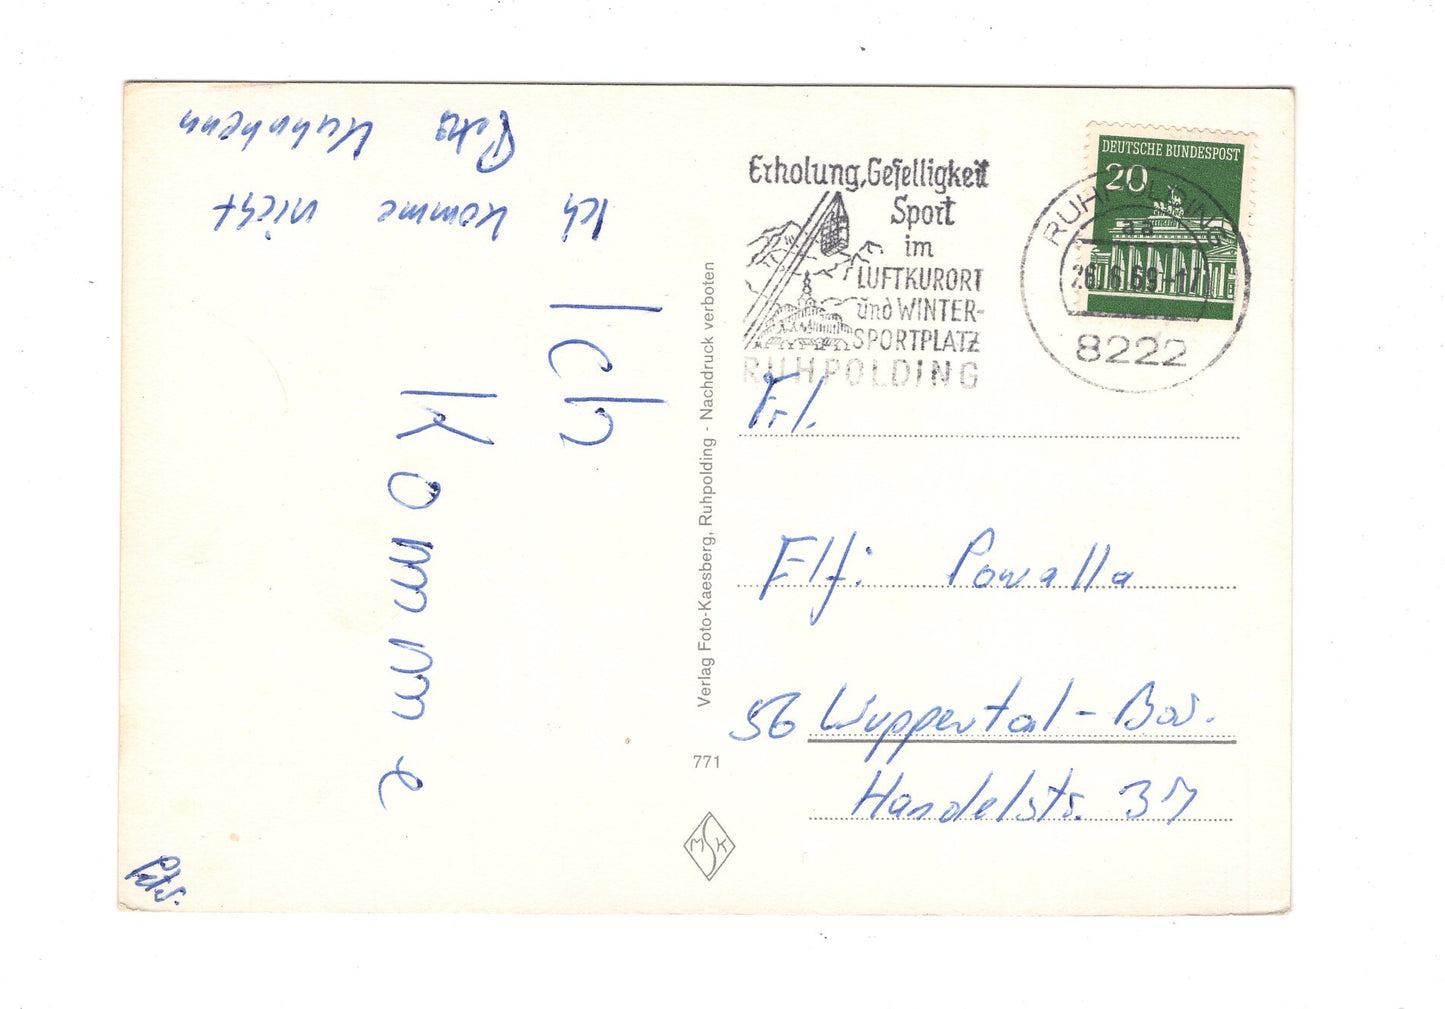 Ich komme nicht
Peter Kuhnhenn
Ich
Komme
Verlag Foto-Kaesberg, Ruhpolding - Nachdruck verboten
771
MSK
Erholung, Geselligkeit
Sport
im
LUFTKURORT
und WINTER-
SPORTPLATZ
RUHPOLDING
DEUTSCHE BUNDESPOST
20
RUHPOLDING
aa
26.6.69-17
8222
Frl.
Elfi Powalla
56 Wuppertal-Bar.
Handelstr. 37